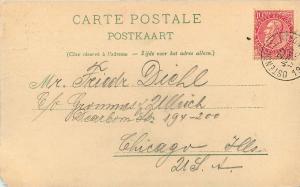 CARTE POSTALE
POSTKAART
(Côté réservé à l'adresse. — Zijde voor het adres alleen.)
Mr. Friedr Diehl
c/o Grommes & Ullrich
Dearborn Str 194-200
Chicago Ills.
U.S.A.